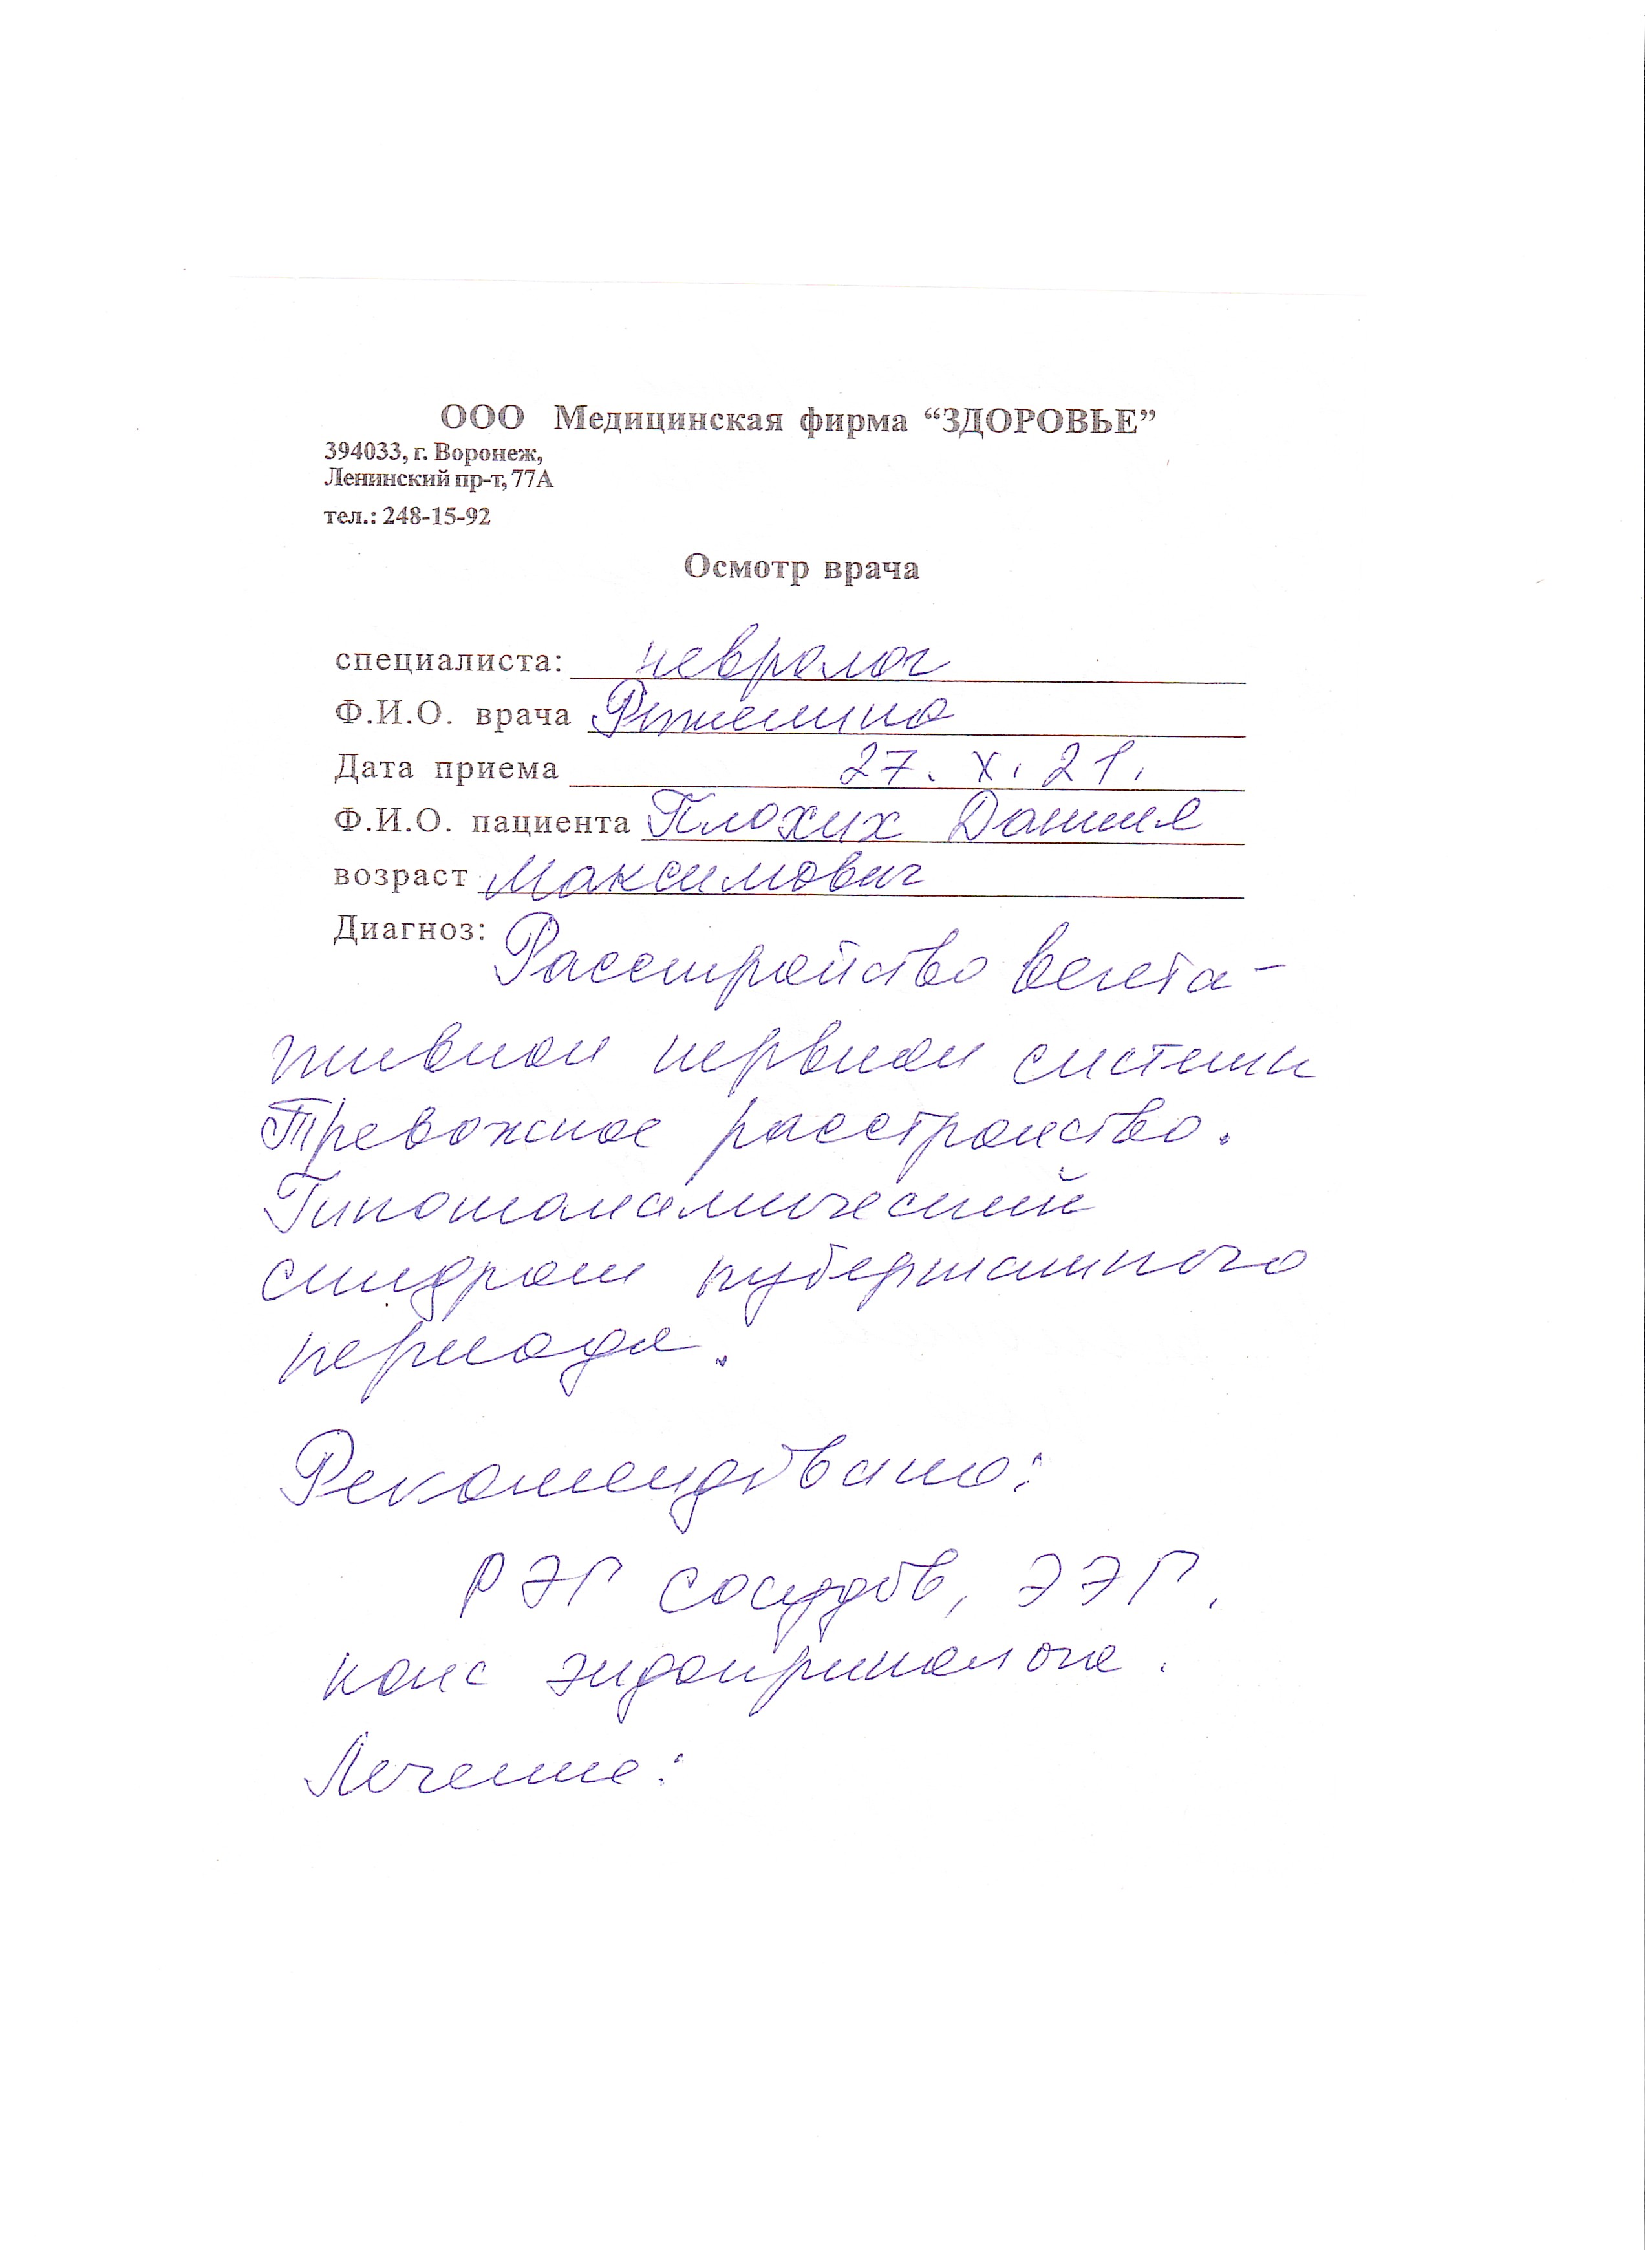 ООО Медицинская фирма “ЗДОРОВЬЕ”
394033, г. Воронеж,
Ленинский пр-т, 77А
тел.: 248-15-92
Осмотр врача
специалиста: невролог
Ф.И.О. врача
Дата приема 27. X. 21.
Ф.И.О. пациента Плохих Даниил
возраст Максимович
Диагноз: Расстройство вегета-
тивной нервной системы
Тревожное расстройство.
Гипоталамический
синдром пубертатного
периода.
Рекомендовано:
РЭГ сосудов, ЭЭГ.
конс эндокринолога.
Лечение: